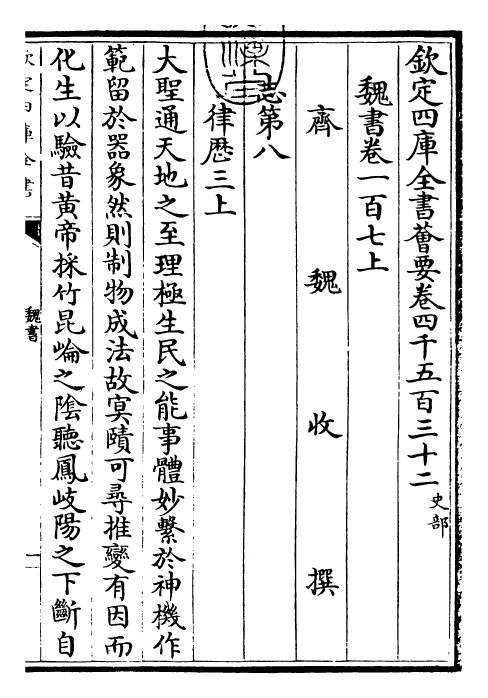 欽定四庫全書薈要卷四千五百三十二 史部
魏書卷一百七上
齊 魏 收 撰
志第八
律歷三上
大聖通天地之至理極生民之能事體妙繫於神機作
範留於器象然則制物成法故寘賾可尋推變有因而
化生以驗昔黄帝採竹昆崘之隂聽鳳岐陽之下斷自
欽定四庫全書
魏書
一